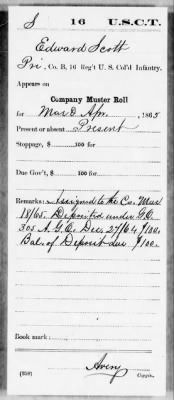 S 16 U.S.C.T.
Edward Scott
Pri, Co. B, 16 Reg't U. S. Col'd Infantry.
Appears on
Company Muster Roll
for Mar & Apr, 1865
Present or absent Present
Stoppage, $ 100 for
Due Gov't, $ 100 for
Remarks: Assigned to the Co. Mar
18/65. Deposited under G.O.
305 A.G.O. Dec 27/64 $100.
Bal. of Deposit due $100.
Book mark:
Avery
(358) Copyist.